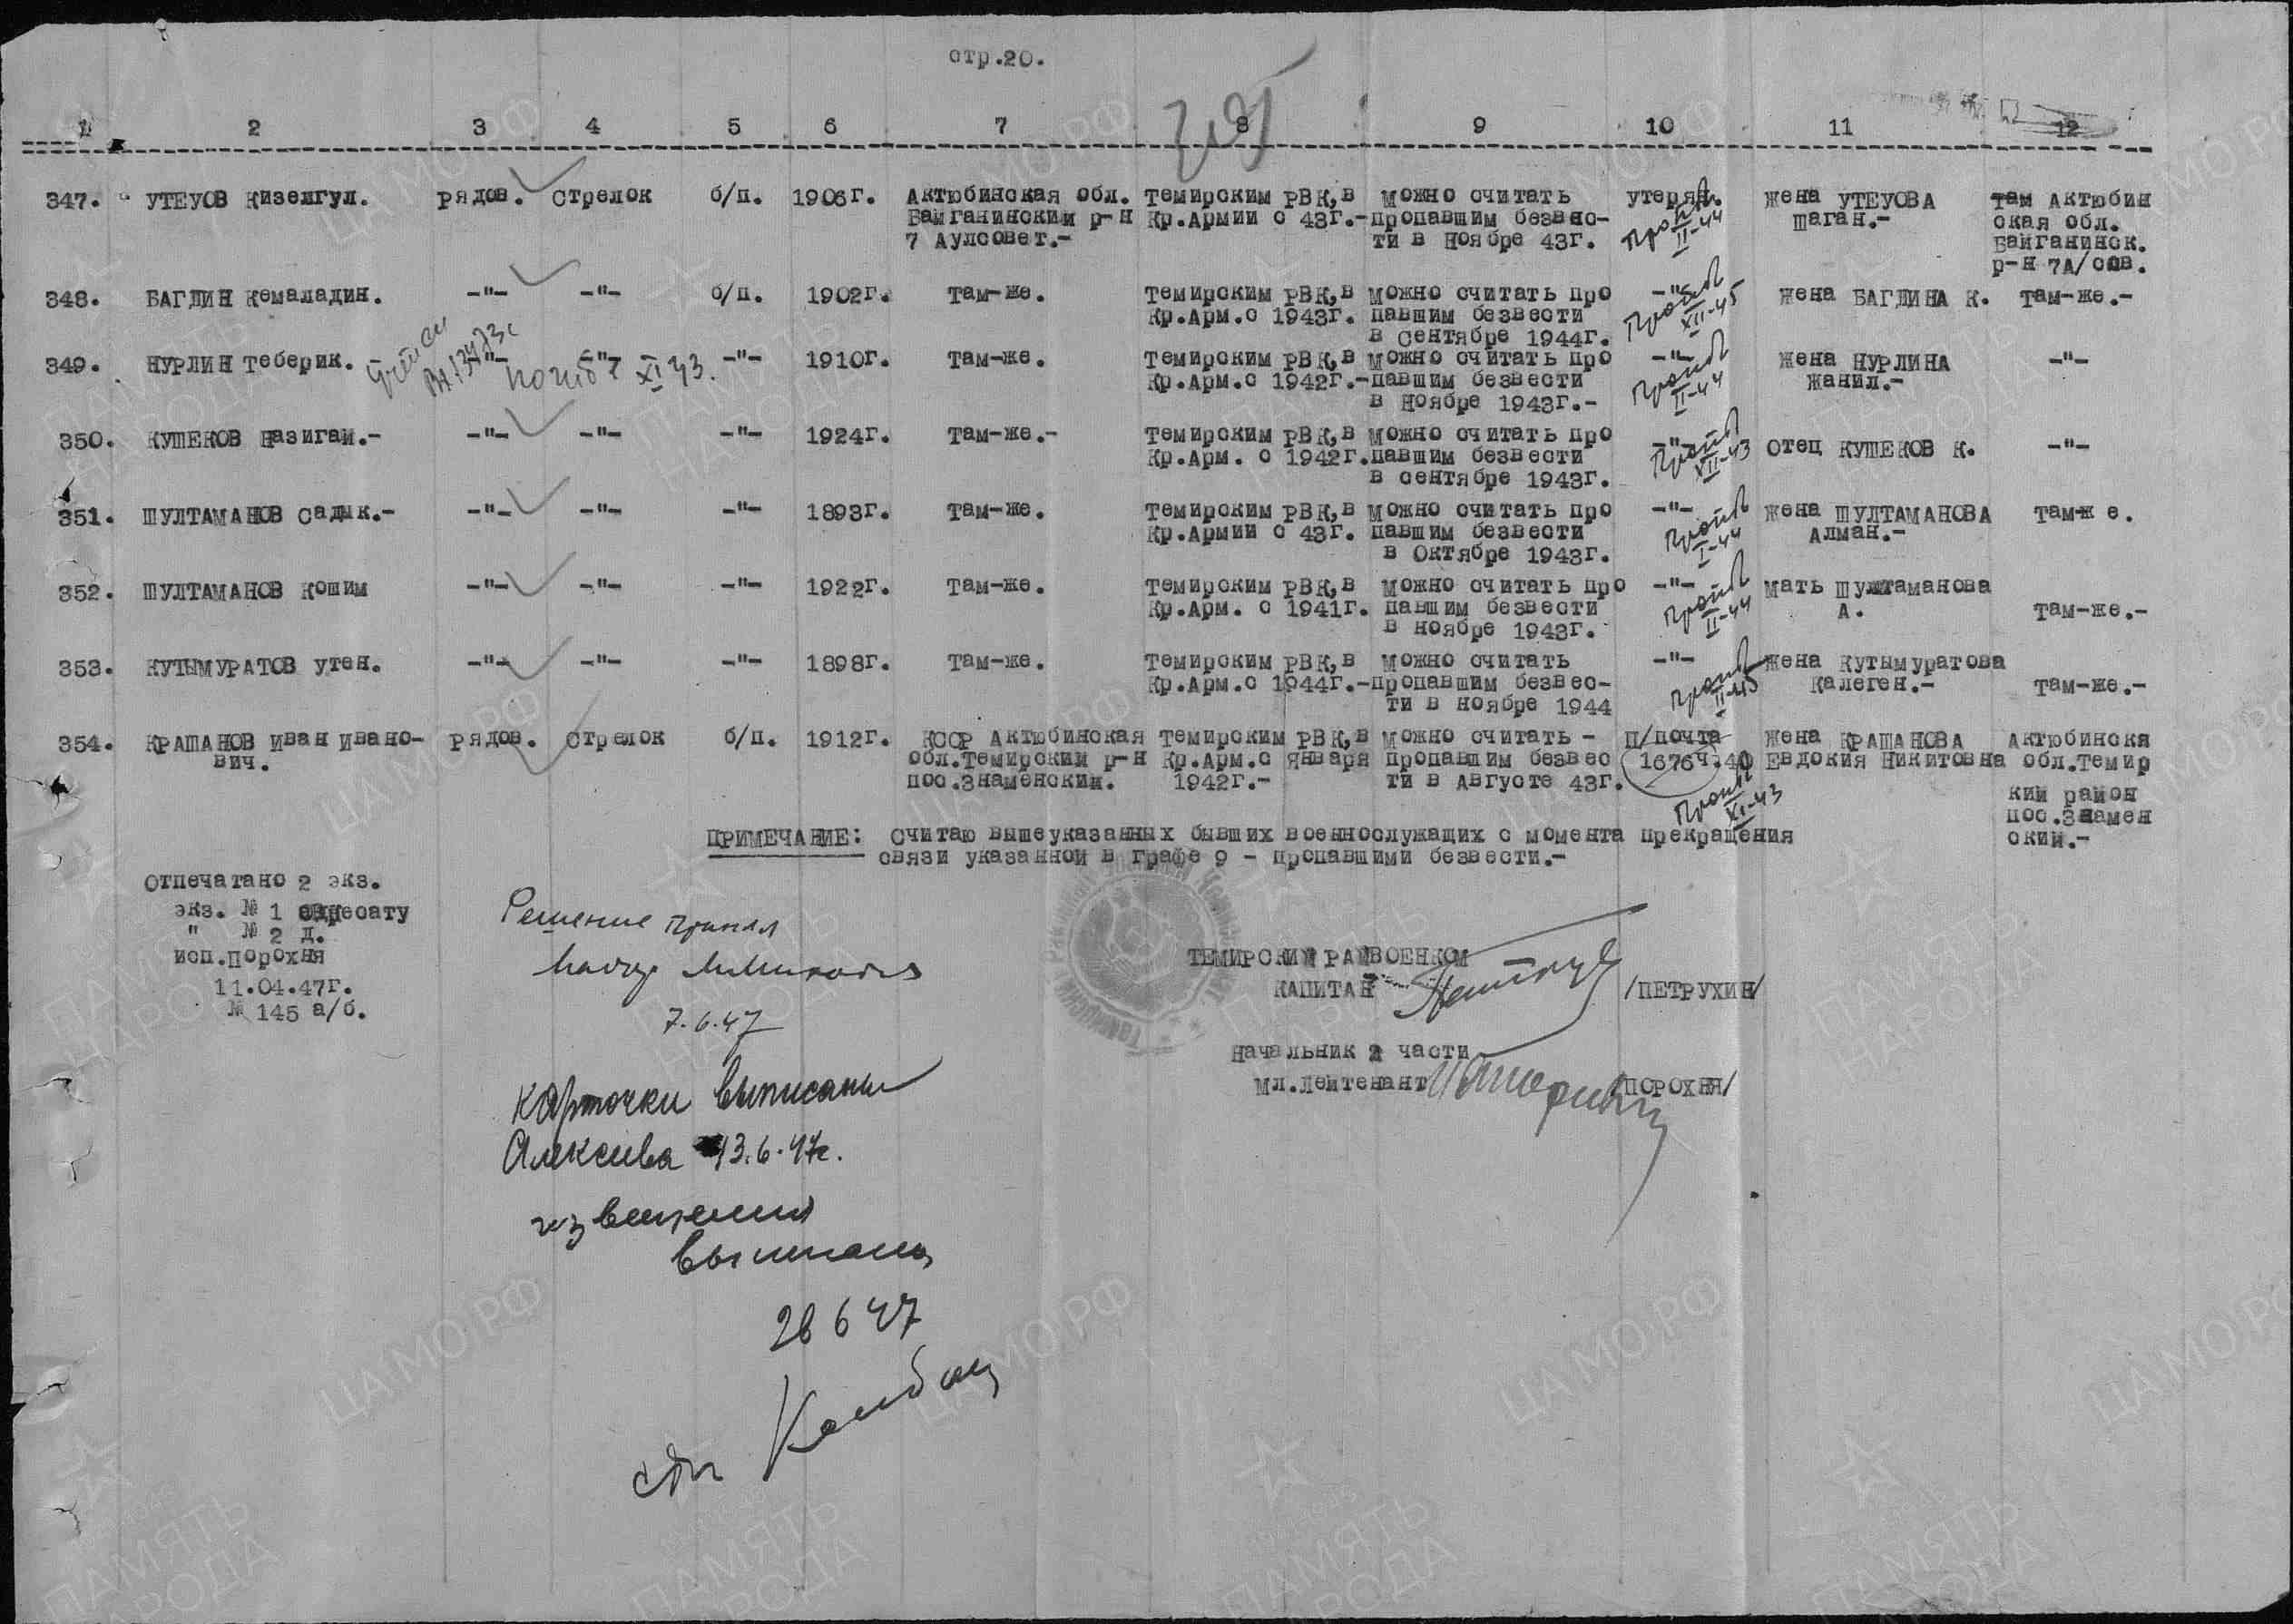 стр.20.
1 2 3 4 5 6 7 8 9 10 11 12
347. УТЕУОВ Кизелгул. рядов. стрелок б/п. 1906г. Актюбинская обл. Темирским РВК, в можно считать утерян. жена УТЕУОВА там Актюбин
Байганинский р-н Кр.Армии с 43г.- пропавшим безвес- Шаган.- ская обл.
7 Аулсовет.- ти в ноябре 43г. Байганинск.
р-н 7А/сов.
Проп. II-44
348. БАГЛИН Кемаладин. -"- -"- б/п. 1902г. Там-же. Темирским РВК, в можно считать про -"- жена БАГЛИНА К. Там-же.-
Кр.Арм.с 1943г. павшим безвести
в сентябре 1944г.
XII-45
349. НУРЛИН Теберик. -"- -"- -"- 1910г. Там-же. Темирским РВК, в можно считать про -"- жена НУРЛИНА -"-
Кр.Арм.с 1942г.- павшим безвести Жанил.-
в ноябре 1943г.-
погиб 7 XI 43.
II-44
350. КУШЕКОВ Назигай.- -"- -"- -"- 1924г. Там-же.- Темирским РВК, в можно считать про -"- отец КУШЕКОВ К. -"-
Кр.Арм. с 1942г. павшим безвести
в сентябре 1943г.
XII-43
351. ШУЛТАМАНОВ Садык.- -"- -"- -"- 1893г. Там-же. Темирским РВК, в можно считать про -"- жена ШУЛТАМАНОВА Там-же.
Кр.Армии с 43г. павшим безвести Алман.-
в Октябре 1943г.
I-44
352. ШУЛТАМАНОВ Кошим -"- -"- -"- 1922г. Там-же. Темирским РВК, в можно считать про -"- мать Шултаманова
Кр.Арм. с 1941г. павшим безвести А. Там-же.-
в ноябре 1943г.
II-44
353. КУТЫМУРАТОВ Утен. -"- -"- -"- 1898г. Там-же. Темирским РВК, в можно считать -"- жена Кутымуратова
Кр.Арм.с 1944г.- пропавшим безвес- Калеген.- Там-же.-
ти в ноябре 1944
II-45
354. КРАШАНОВ Иван Ивано- рядов. стрелок б/п. 1912г. КССР Актюбинская Темирским РВК, в можно считать - п/почта жена КРАШАНОВА Актюбинскя
вич. обл.Темирский р-н Кр.Арм.с января пропавшим безвес 16764-40 Евдокия Никитовна обл.Темир
пос.Знаменский. 1942г.- ти в Августе 43г. кий район
пос.Знамен
ский.-
XI-43
ПРИМЕЧАНИЕ: Считаю вышеуказанных бывших военнослужащих с момента прекращения
связи указанной в графе 9 - пропавшими безвести.-
Отпечатано 2 экз.
экз. № 1 адресату
" № 2 д.
исп.Порохня
11.04.47г.
№ 145 а/б.
Решение принял
7.6.47
карточки выписаны
Алексеева 13.6.47г.
извещения
выписаны
28 6 47
ТЕМИРСКИЙ РАЙВОЕНКОМ
КАПИТАН /ПЕТРУХИН/
Начальник 2 части
Мл.Лейтенант /ПОРОХНЯ/
ЦАМО.РФ
ПАМЯТЬ
НАРОДА